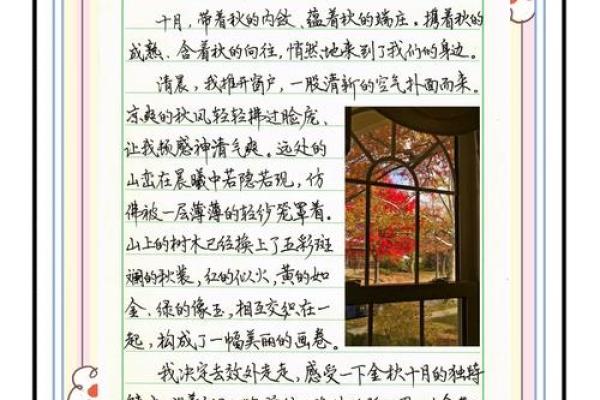 十月，带着秋的内敛、蕴着秋的端庄。携着秋的
成熟、含着秋的向往，悄然地来到了我们的身边。
清晨，我推开窗户，一股清新的空气扑面而来。
凉爽的秋风轻轻拂过脸庞、
让我顿感神清气爽。远处的
山峦在晨曦中若隐若现，仿
佛被一层薄薄的轻纱笼罩着。
山上的树木已经换上了五彩斑
斓的秋装，红的似火，黄的如
金、绿的像玉，相互交织在一
起，构成了一幅美丽的画卷。
我决定去郊外走走，感受一下金秋十月的独特